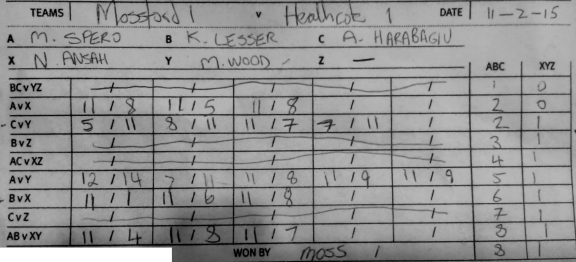 TEAMS Mossford 1 v Heathcote 1 DATE 11-2-15
A M. SPERO B K. LESSER C A. HARABAGIU
X N. ANSAH Y M. WOOD Z —
ABC XYZ
BCvYZ / / / / / 1 0
AvX 11/8 11/5 11/8 / / 2 0
CvY 5/11 8/11 11/7 7/11 / 2 1
BvZ / / / / / 3 1
ACvXZ / / / / / 4 1
AvY 12/14 7/11 11/8 11/9 11/9 5 1
BvX 11/1 11/6 11/8 / / 6 1
CvZ / / / / / 7 1
ABvXY 11/4 11/8 11/7 / / 8 1
WON BY MOSS 1 8 1